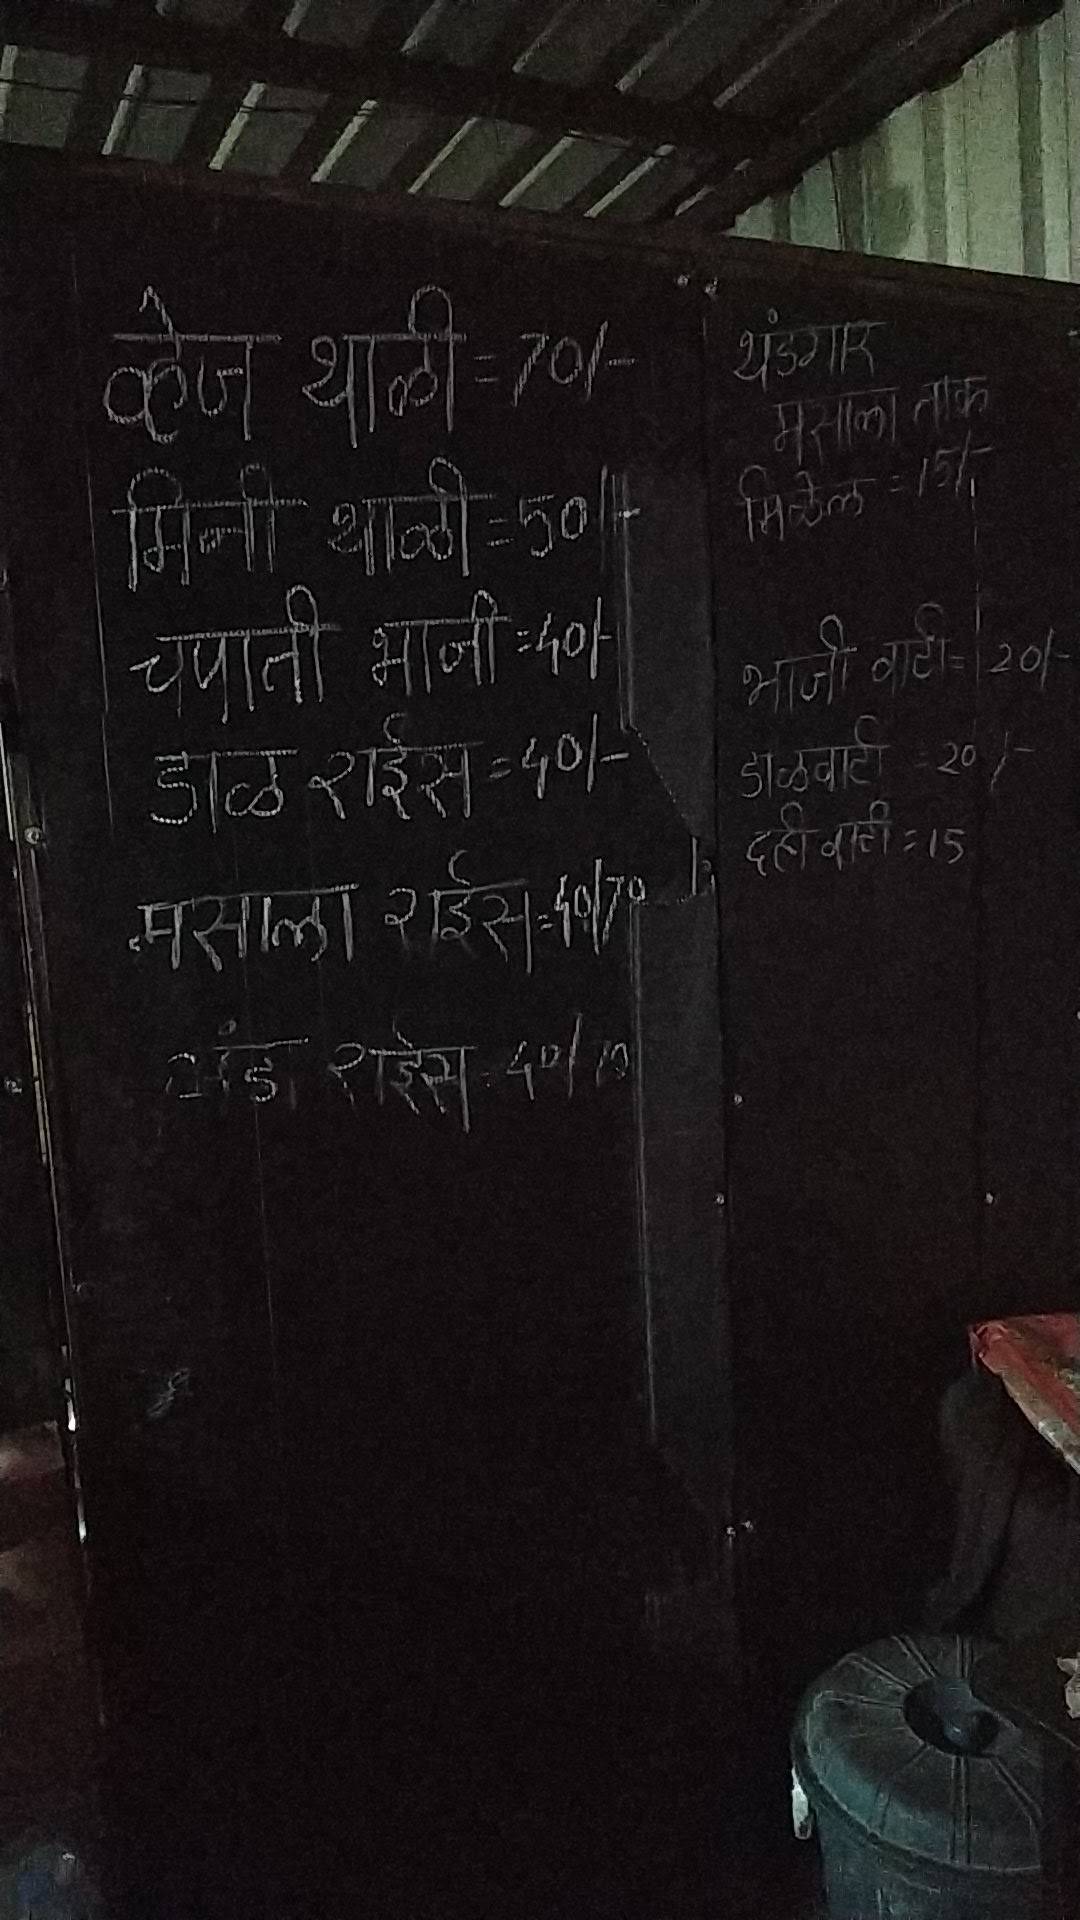 व्हेज थाळी = 70/-
मिनी थाळी = 50/-
चपाती भाजी = 40/-
डाळ राईस = 40/-
मसाला राईस = 40/70
अंडा राईस = 40/70
थंडगार
मसाला ताक
मिळेल = 15/-
भाजी वाटी = 20/-
डाळवाटी = 20/-
दही वाटी = 15